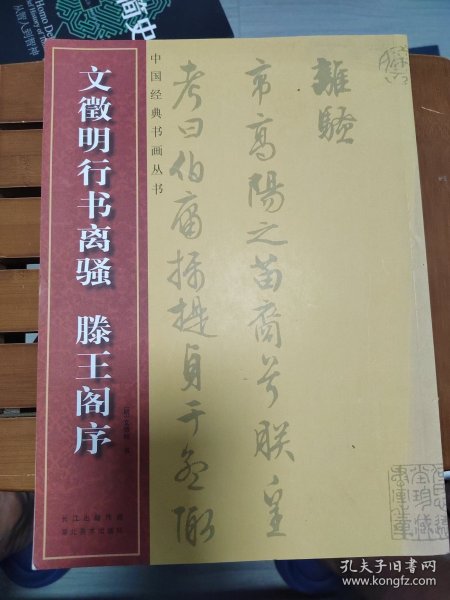 简史
Homo De
中国经典书画丛书
文徵明行书离骚 滕王阁序
離騷
帝高陽之苗裔兮朕皇
考曰伯庸攝提貞于孟陬
长江出版传媒
湖北美术出版社
孔夫子旧书网
www.kongfz.com